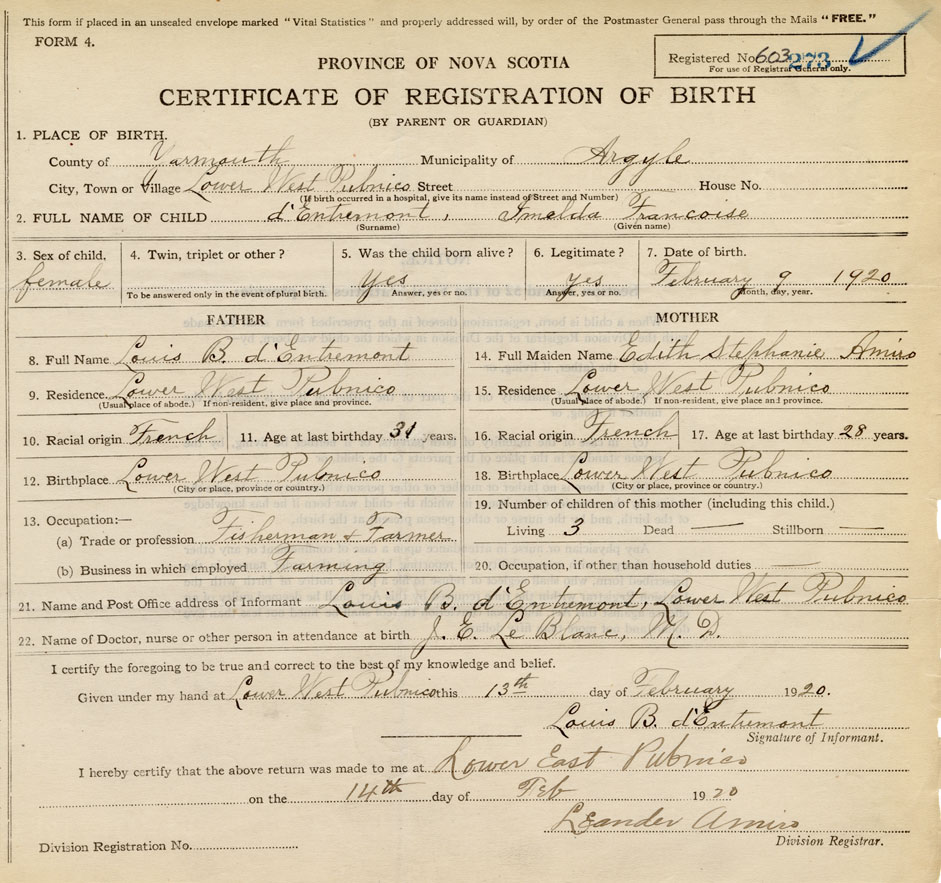 This form if placed in an unsealed envelope marked "Vital Statistics" and properly addressed will, by order of the Postmaster General pass through the Mails "FREE."
FORM 4.
Registered No. 603 273
For use of Registrar General only.
PROVINCE OF NOVA SCOTIA
CERTIFICATE OF REGISTRATION OF BIRTH
(BY PARENT OR GUARDIAN)
1. PLACE OF BIRTH.
County of Yarmouth Municipality of Argyle
City, Town or Village Lower West Pubnico Street House No.
(If birth occurred in a hospital, give its name instead of Street and Number)
2. FULL NAME OF CHILD d'Entremont, Imelda Francoise
(Surname) (Given name)
3. Sex of child. 4. Twin, triplet or other? 5. Was the child born alive? 6. Legitimate? 7. Date of birth.
female yes yes February 9 1920
To be answered only in the event of plural birth. Answer, yes or no. Answer, yes or no. Month, day, year.
FATHER MOTHER
8. Full Name Louis B. d'Entremont 14. Full Maiden Name Edith Stephanie Amiro
9. Residence. Lower West Pubnico 15. Residence Lower West Pubnico
(Usual place of abode.) If non-resident, give place and province. (Usual place of abode.) If non-resident, give place and province.
10. Racial origin French 11. Age at last birthday 31 years. 16. Racial origin French 17. Age at last birthday 28 years.
12. Birthplace Lower West Pubnico 18. Birthplace Lower West Pubnico
(City or place, province or country.) (City or place, province or country.)
13. Occupation:— 19. Number of children of this mother (including this child.)
(a) Trade or profession Fisherman & Farmer Living 3 Dead — Stillborn —
(b) Business in which employed Farming 20. Occupation, if other than household duties —
21. Name and Post Office address of Informant Louis B. d'Entremont, Lower West Pubnico
22. Name of Doctor, nurse or other person in attendance at birth J. E. Le Blanc, M. D.
I certify the foregoing to be true and correct to the best of my knowledge and belief.
Given under my hand at Lower West Pubnico this 13th day of February 1920.
Louis B. d'Entremont
Signature of Informant.
I hereby certify that the above return was made to me at Lower East Pubnico
on the 14th day of Feb 1920
Leander Amiro
Division Registration No. Division Registrar.